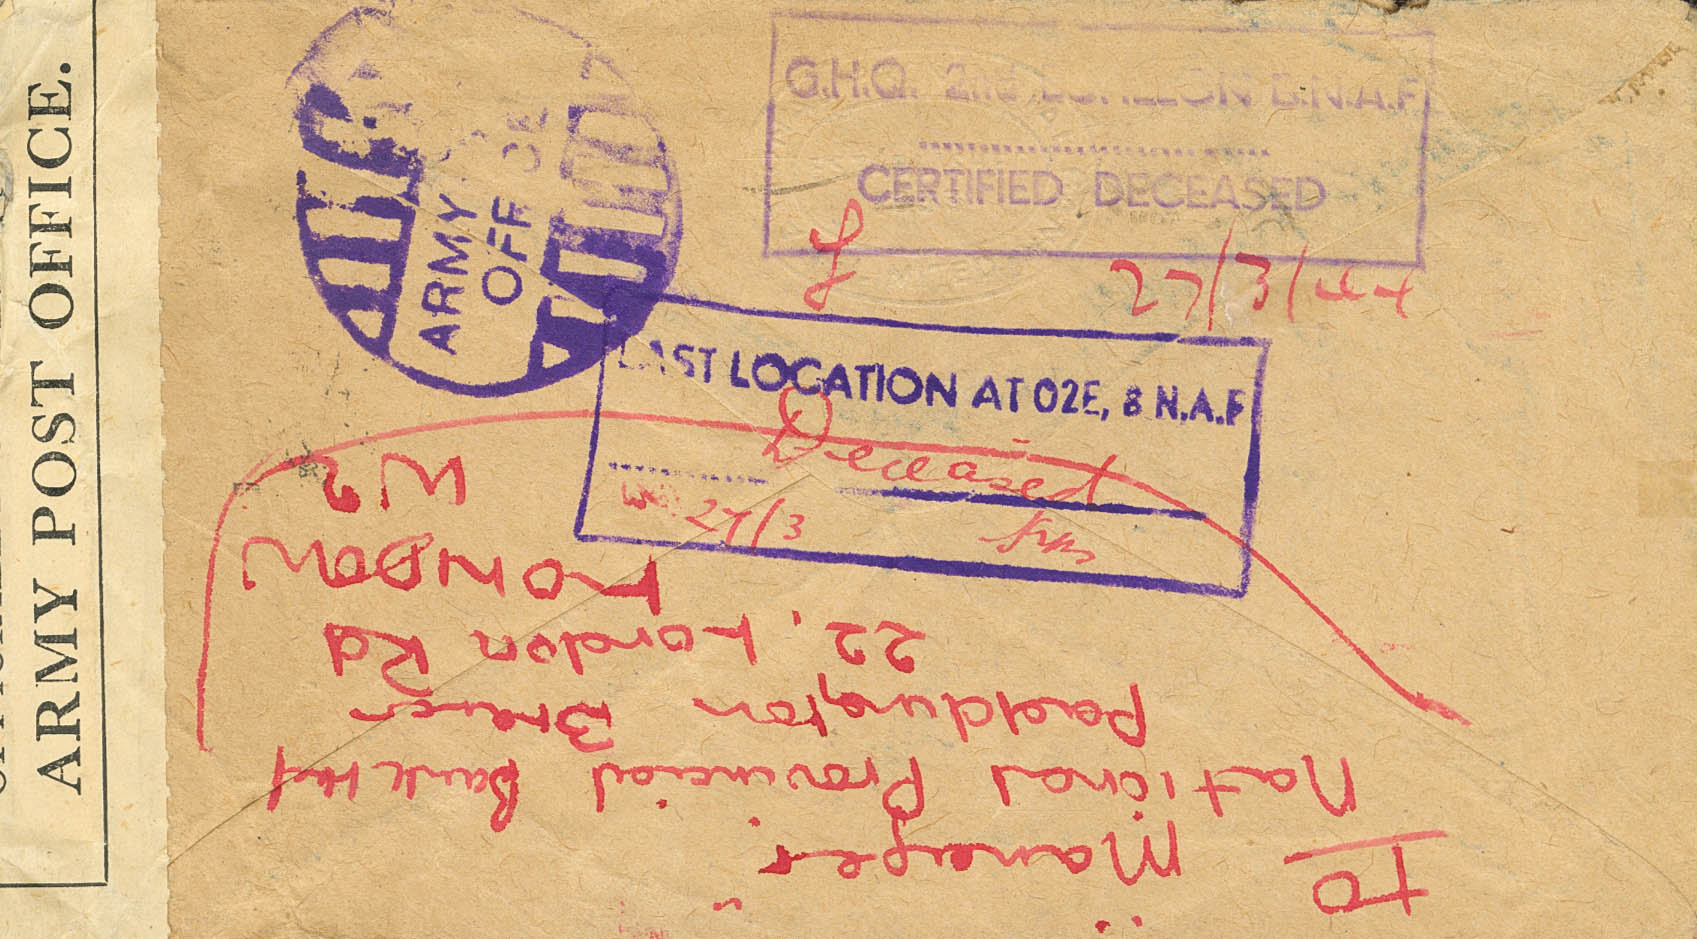 ARMY POST OFFICE.
ARMY
OFF
G.H.Q. 2nd ECHELON B.N.A.F
CERTIFIED DECEASED
27/3/44
LAST LOCATION AT 02E, B.N.A.F
Deceased
27/3
To
Manager
National Provincial Bank Ltd
Paddington Branch
22, London Rd
LONDON
W.2